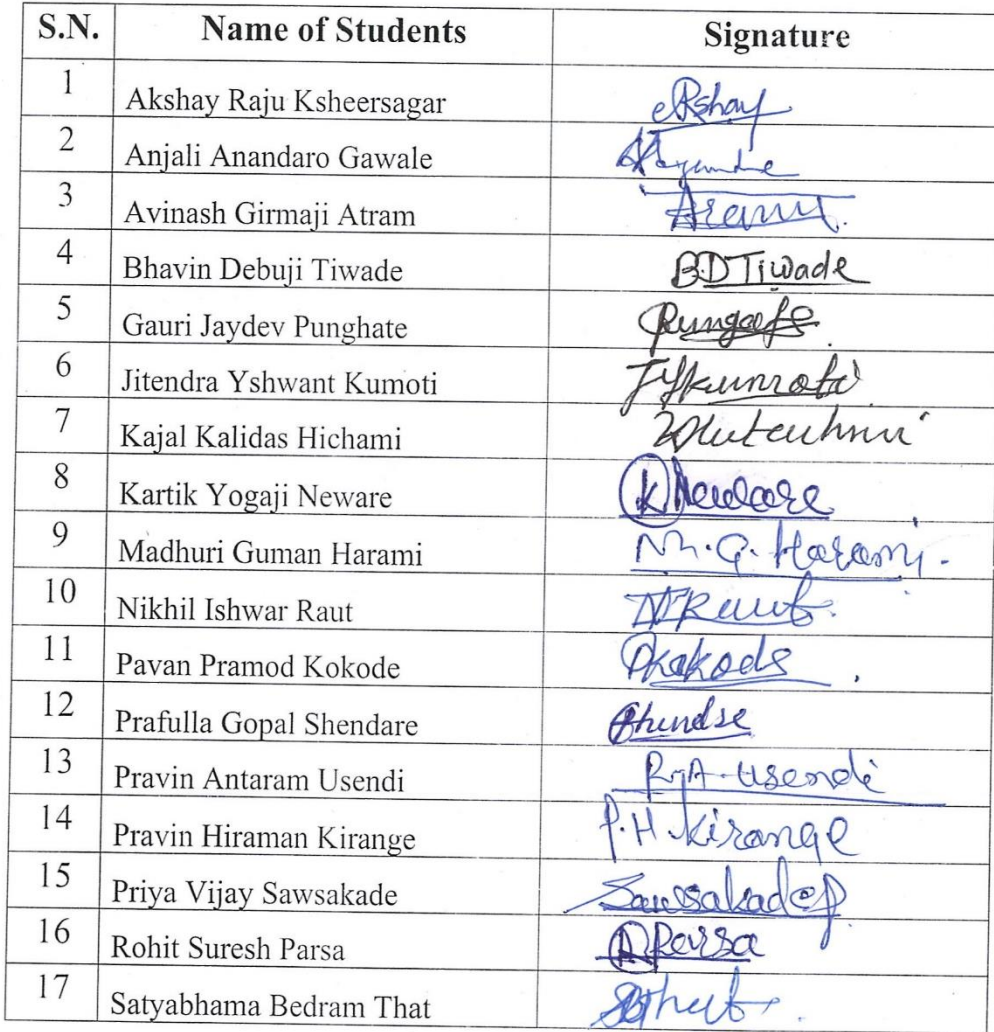 S.N. Name of Students Signature
1 Akshay Raju Ksheersagar
2 Anjali Anandaro Gawale
3 Avinash Girmaji Atram
4 Bhavin Debuji Tiwade B.D Tiwade
5 Gauri Jaydev Punghate
6 Jitendra Yshwant Kumoti
7 Kajal Kalidas Hichami
8 Kartik Yogaji Neware K Neware
9 Madhuri Guman Harami M.G. Harami.
10 Nikhil Ishwar Raut
11 Pavan Pramod Kokode
12 Prafulla Gopal Shendare
13 Pravin Antaram Usendi P.A. Usendi
14 Pravin Hiraman Kirange P.H. Kirange
15 Priya Vijay Sawsakade Sawsakade
16 Rohit Suresh Parsa R Parsa
17 Satyabhama Bedram That